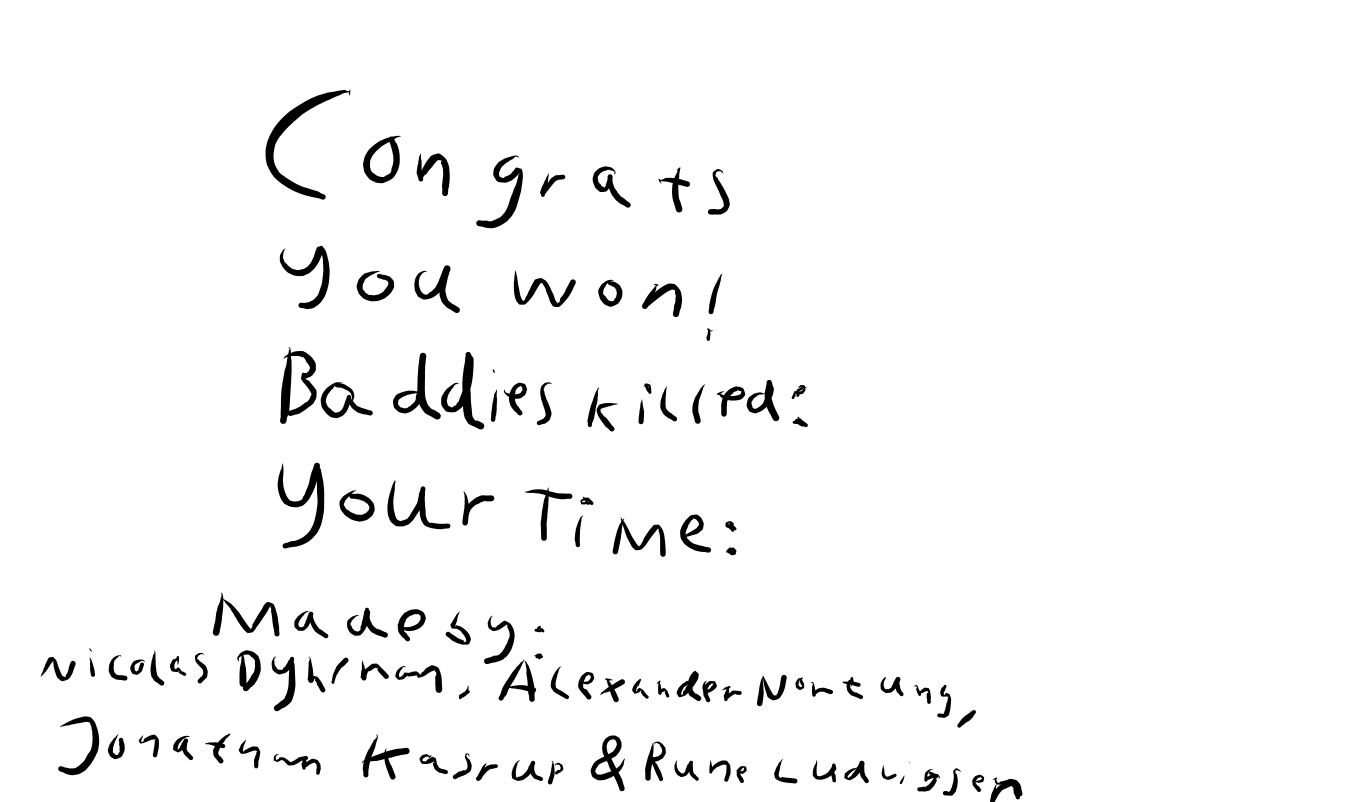 Congrats
You won!
Baddies killed:
Your Time:
Made by:
Nicolas Dyhrman, Alexander Nortung,
Jonathan Kasrup & Rune Ludvigsen